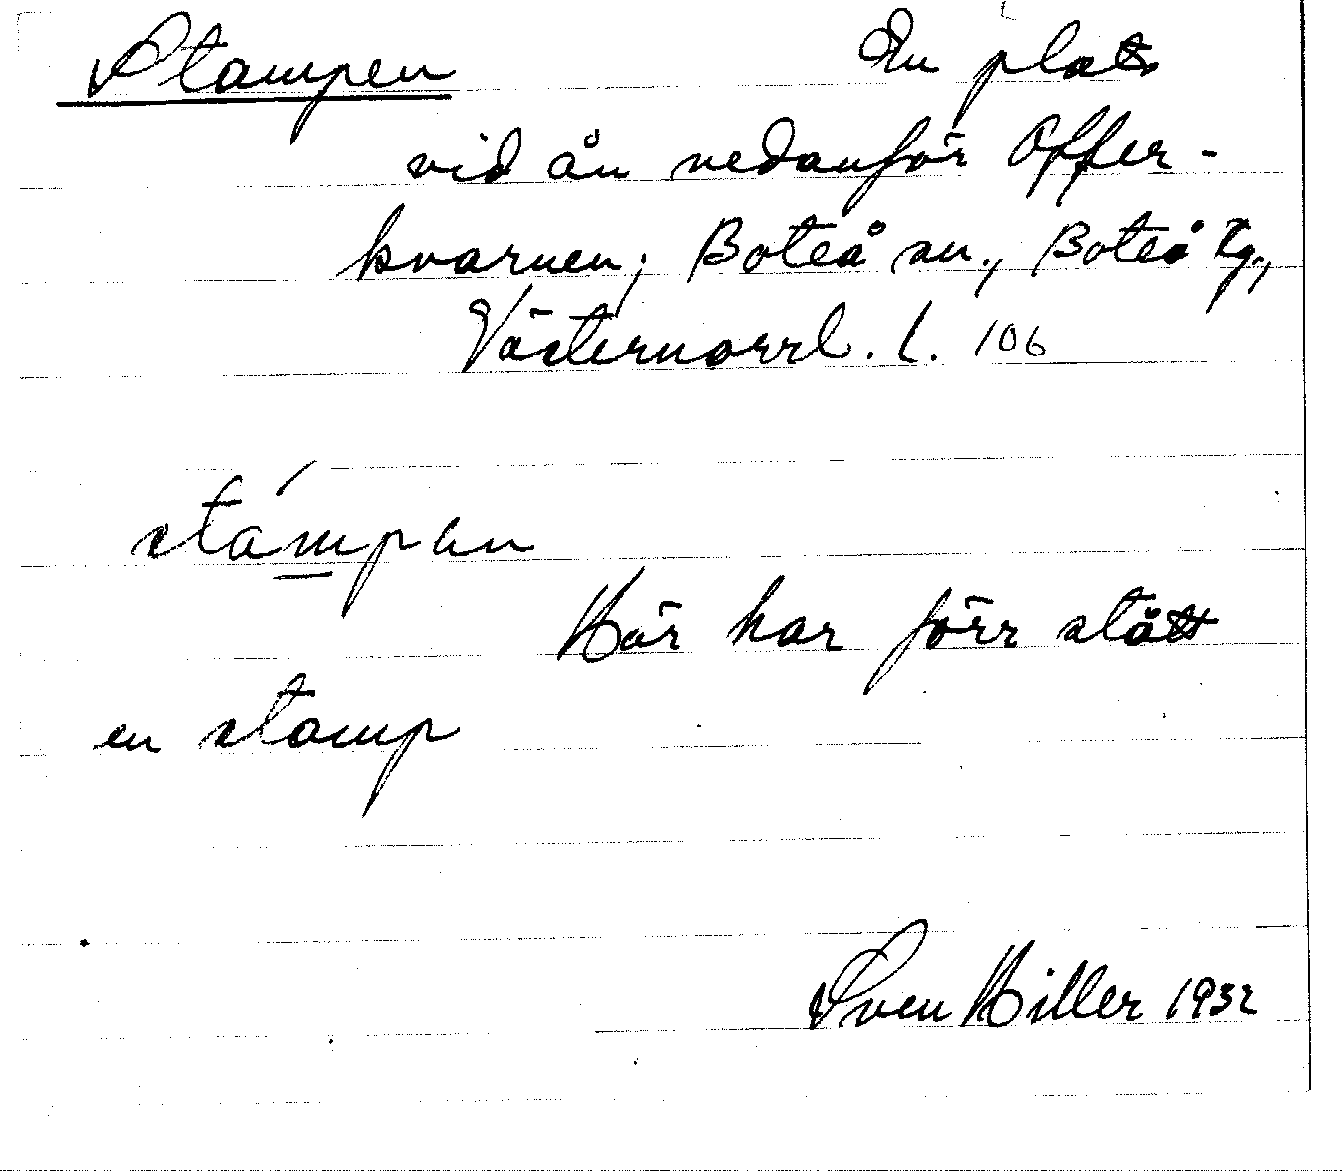 Stampen En plats
vid ån nedanför Offer-
kvarnen; Boteå sn., Boteå tg.,
Västernorrl. l. 106
stámpan
Här har förr stått
en stamp
Sven Hiller 1932